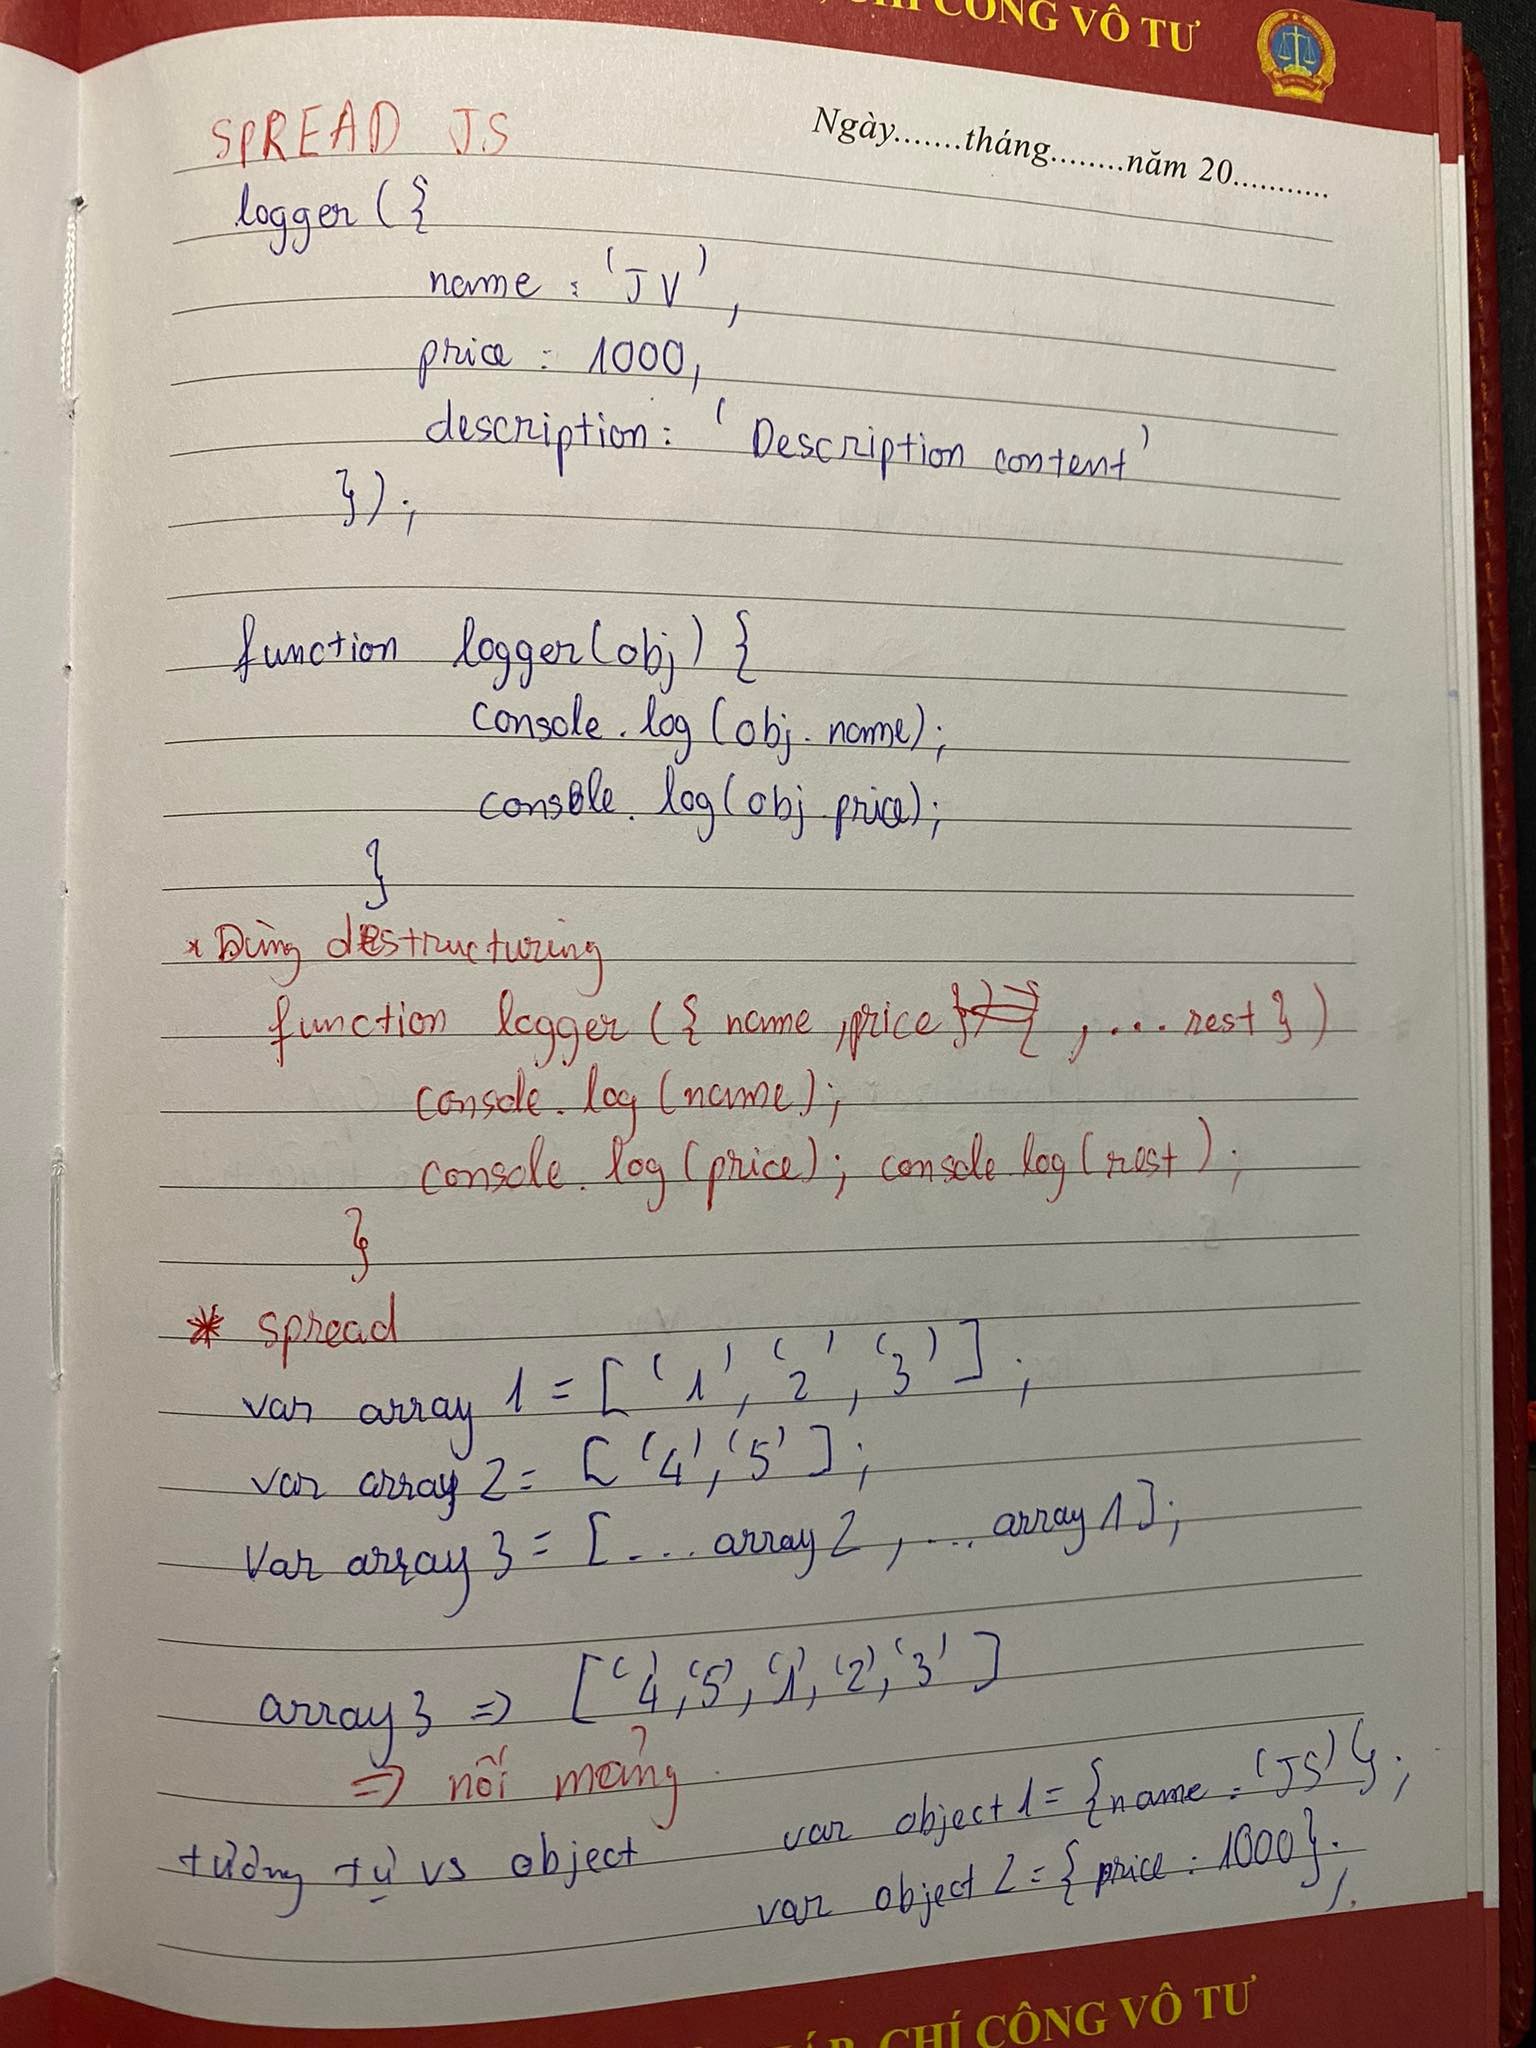 CHÍ CÔNG VÔ TƯ
Ngày.......tháng........năm 20...........
SPREAD JS
logger ({
name : 'JV',
price : 1000,
description : 'Description content'
});
function logger(obj) {
console.log(obj.name);
console.log(obj.price);
}
* Dùng destructuring
function logger ({ name, price , ... rest })
console.log(name);
console.log(price); console log(rest);
}
* spread
var array 1 = ['1', '2', '3'];
var array 2 = ['4', '5'];
Var array 3 = [... array 2, ... array 1];
array 3 => ['4', '5', '1', '2', '3']
=> nối mảng
tương tự vs object
var object 1 = {name : 'JS'};
var object 2 = {price : 1000};
CHÍ CÔNG VÔ TƯ